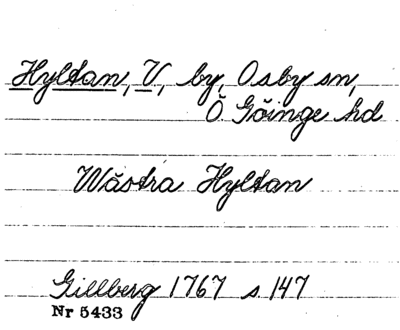 Hyltan, V, by, Osby sn,
Ö Göinge hd
Wästra Hyltan
Gillberg 1767 s. 147
Nr 5433